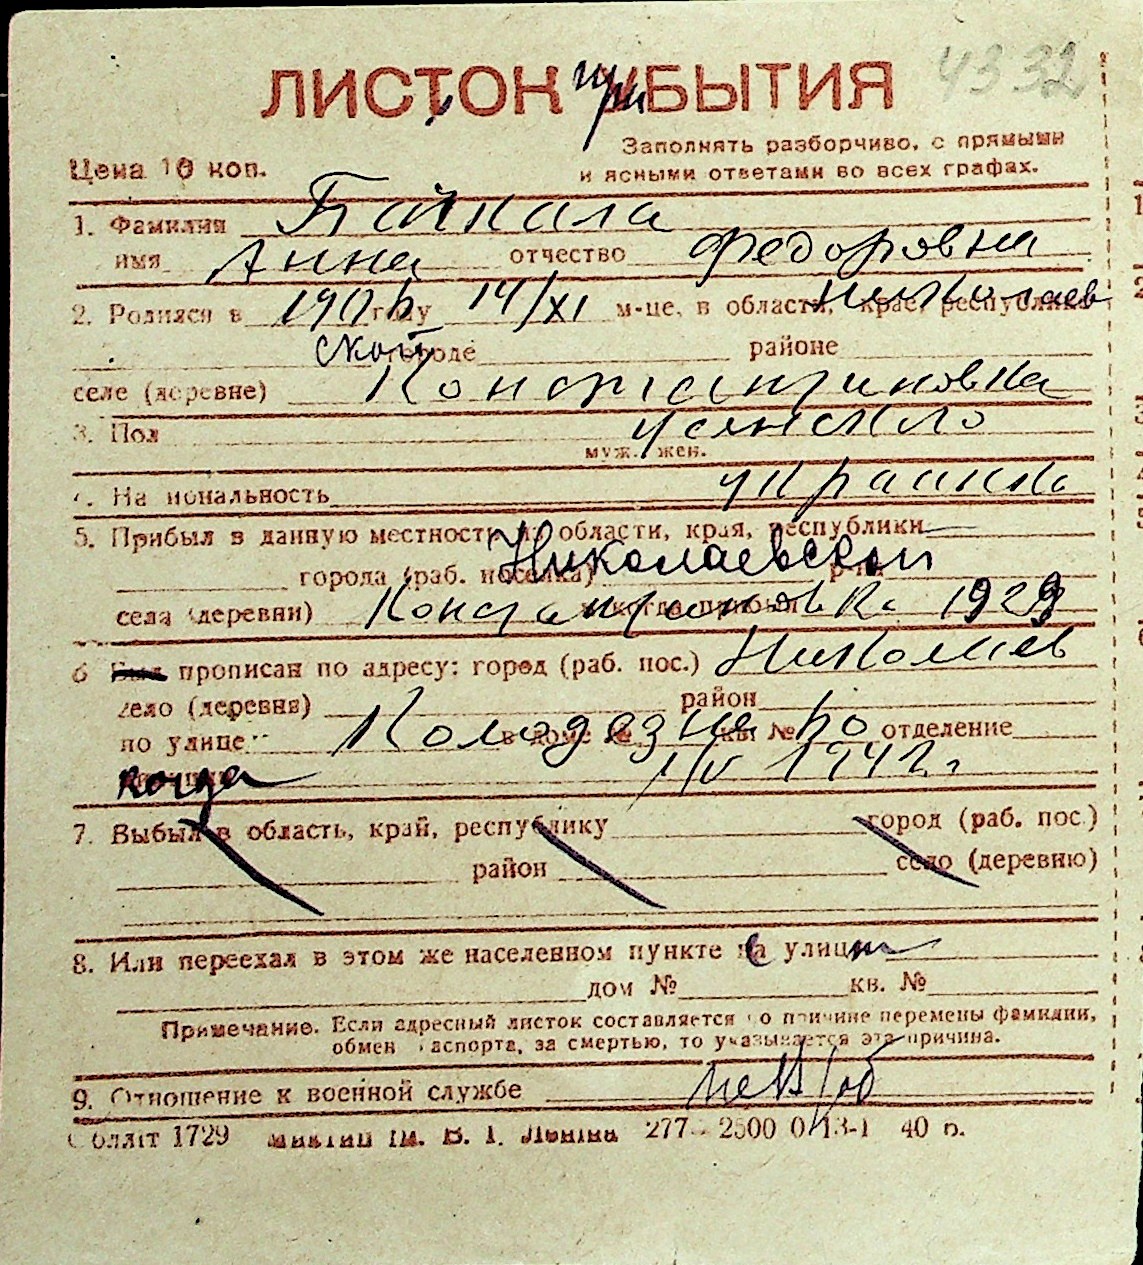 4332
ЛИСТОК при УБЫТИЯ
Заполнять разборчиво, с прямыми
Цена 10 коп.
и ясными ответами во всех графах.
1. Фамилия Байкала
имя Анна отчество Федоровна
2. Родился в 1906 году 14/XI м-це, в области, крае, республике Николаев
ской городе районе
селе (деревне) Константиновка
3. Пол женский
муж. жен.
4. Национальность украинка
5. Прибыл в данную местность из области, края, республики
города (раб. поселка) Николаевской р-на
села (деревни) Константиновка и когда прибыл 1929
6 Был прописан по адресу: город (раб. пос.) Николаев
село (деревня) район
по улице Колодезная в доме № кв. № отделение
когда 1/V 1942 г.
7. Выбыл в область, край, республику город (раб. пос.)
район село (деревню)
8. Или переехал в этом же населенном пункте на улицу
дом № кв. №
Примечание. Если адресный листок составляется по причине перемены фамилии,
обмен паспорта, за смертью, то указывается эта причина.
9. Отношение к военной службе не в/об
Обллiт 1729 iм. В. I. Ленiна 277 - 2500 0/13-1 40 р.